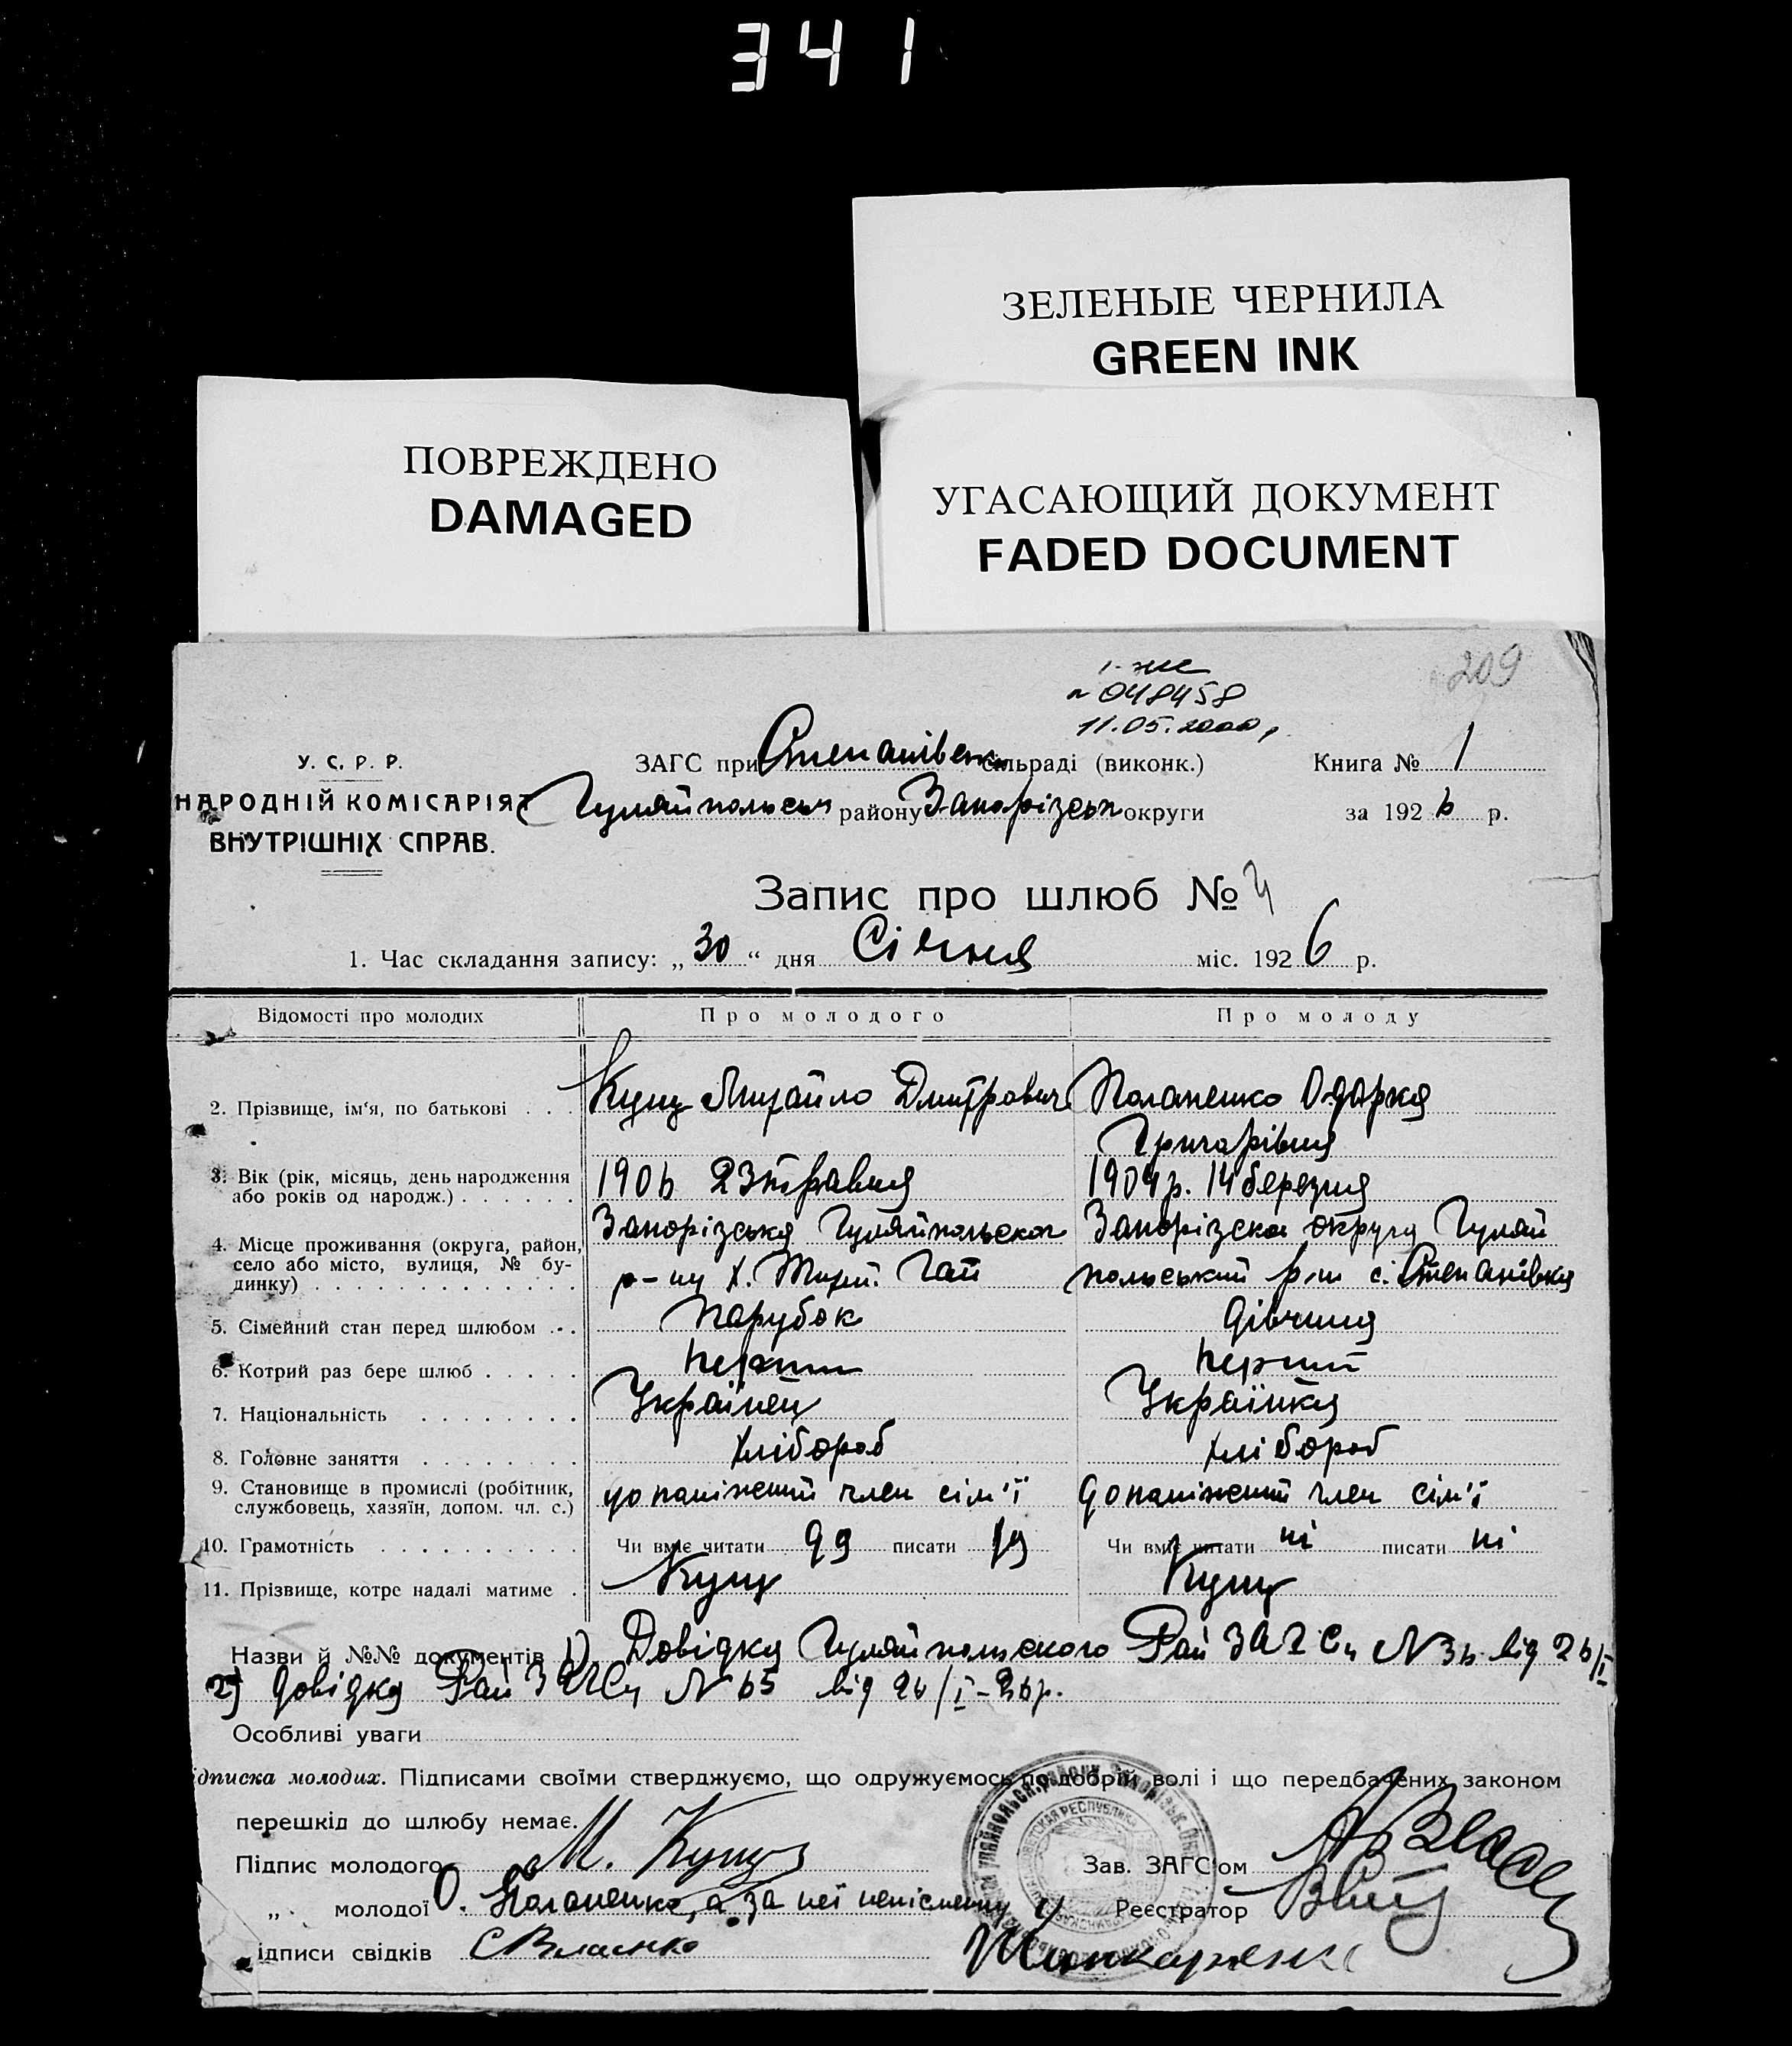 341
ЗЕЛЕНЫЕ ЧЕРНИЛА
GREEN INK
ПОВРЕЖДЕНО
DAMAGED
УГАСАЮЩИЙ ДОКУМЕНТ
FADED DOCUMENT
209
048458
11.05.2000
У. С. Р. Р.
НАРОДНІЙ КОМІСАРІЯТ
ВНУТРІШНІХ СПРАВ.
ЗАГС при Степанівськ сільраді (виконк.)
Гуляйпольськ району Запорізськ округи
Книга № 1
за 1926 р.
Запис про шлюб № 4
1. Час складання запису: „30“ дня Січня міс. 1926 р.
Відомості про молодих Про молодого Про молоду
2. Прізвище, ім‘я, по батькові . . . Кущ Михайло Дмитрович Поланенко Одарка
Григорівна
3. Вік (рік, місяць, день народження або років од народж.) . . . . . . 1906 23 травня 1904 р. 14 березня
4. Місце проживання (округа, район, село або місто, вулиця, № будинку) . . . . . . . . . . . . . Запорізська Гуляйпольськог Запорізска округа Гуляй
р-ну х. Тихий. Гай польський р-н с. Степанівка
5. Сімейний стан перед шлюбом . . . Парубок дівчина
6. Котрий раз бере шлюб . . . . . перший перший
7. Національність . . . . . . . . Українец Українка
8. Головне заняття . . . . . . . . хлібороб хлібороб
9. Становище в промислі (робітник, службовець, хазяїн, допом. чл. с.) допоміжний член сім'ї допоміжний член сім'ї
10. Грамотність . . . . . . . . . . Чи вміє читати да писати да Чи вміє читати ні писати ні
11. Прізвище, котре надалі матиме . Кущ Кущ
Назви й №№ документів 1) Довідка Гуляйпольского Рай ЗАГСу № 36 від 26/I
2) довідка Рай ЗАГСу № 65 від 26/I-26р.
Особливі уваги
ідписка молодих. Підписами своїми стверджуємо, що одружуємось по добрій волі і що передбачених законом
перешкід до шлюбу немає.
Підпис молодого М. Кущ Зав. ЗАГС‘ом
„ молодої О. Поланенко, а за неї неписьменну Реєстратор
ідписи свідків С Власенко Шинкаренко